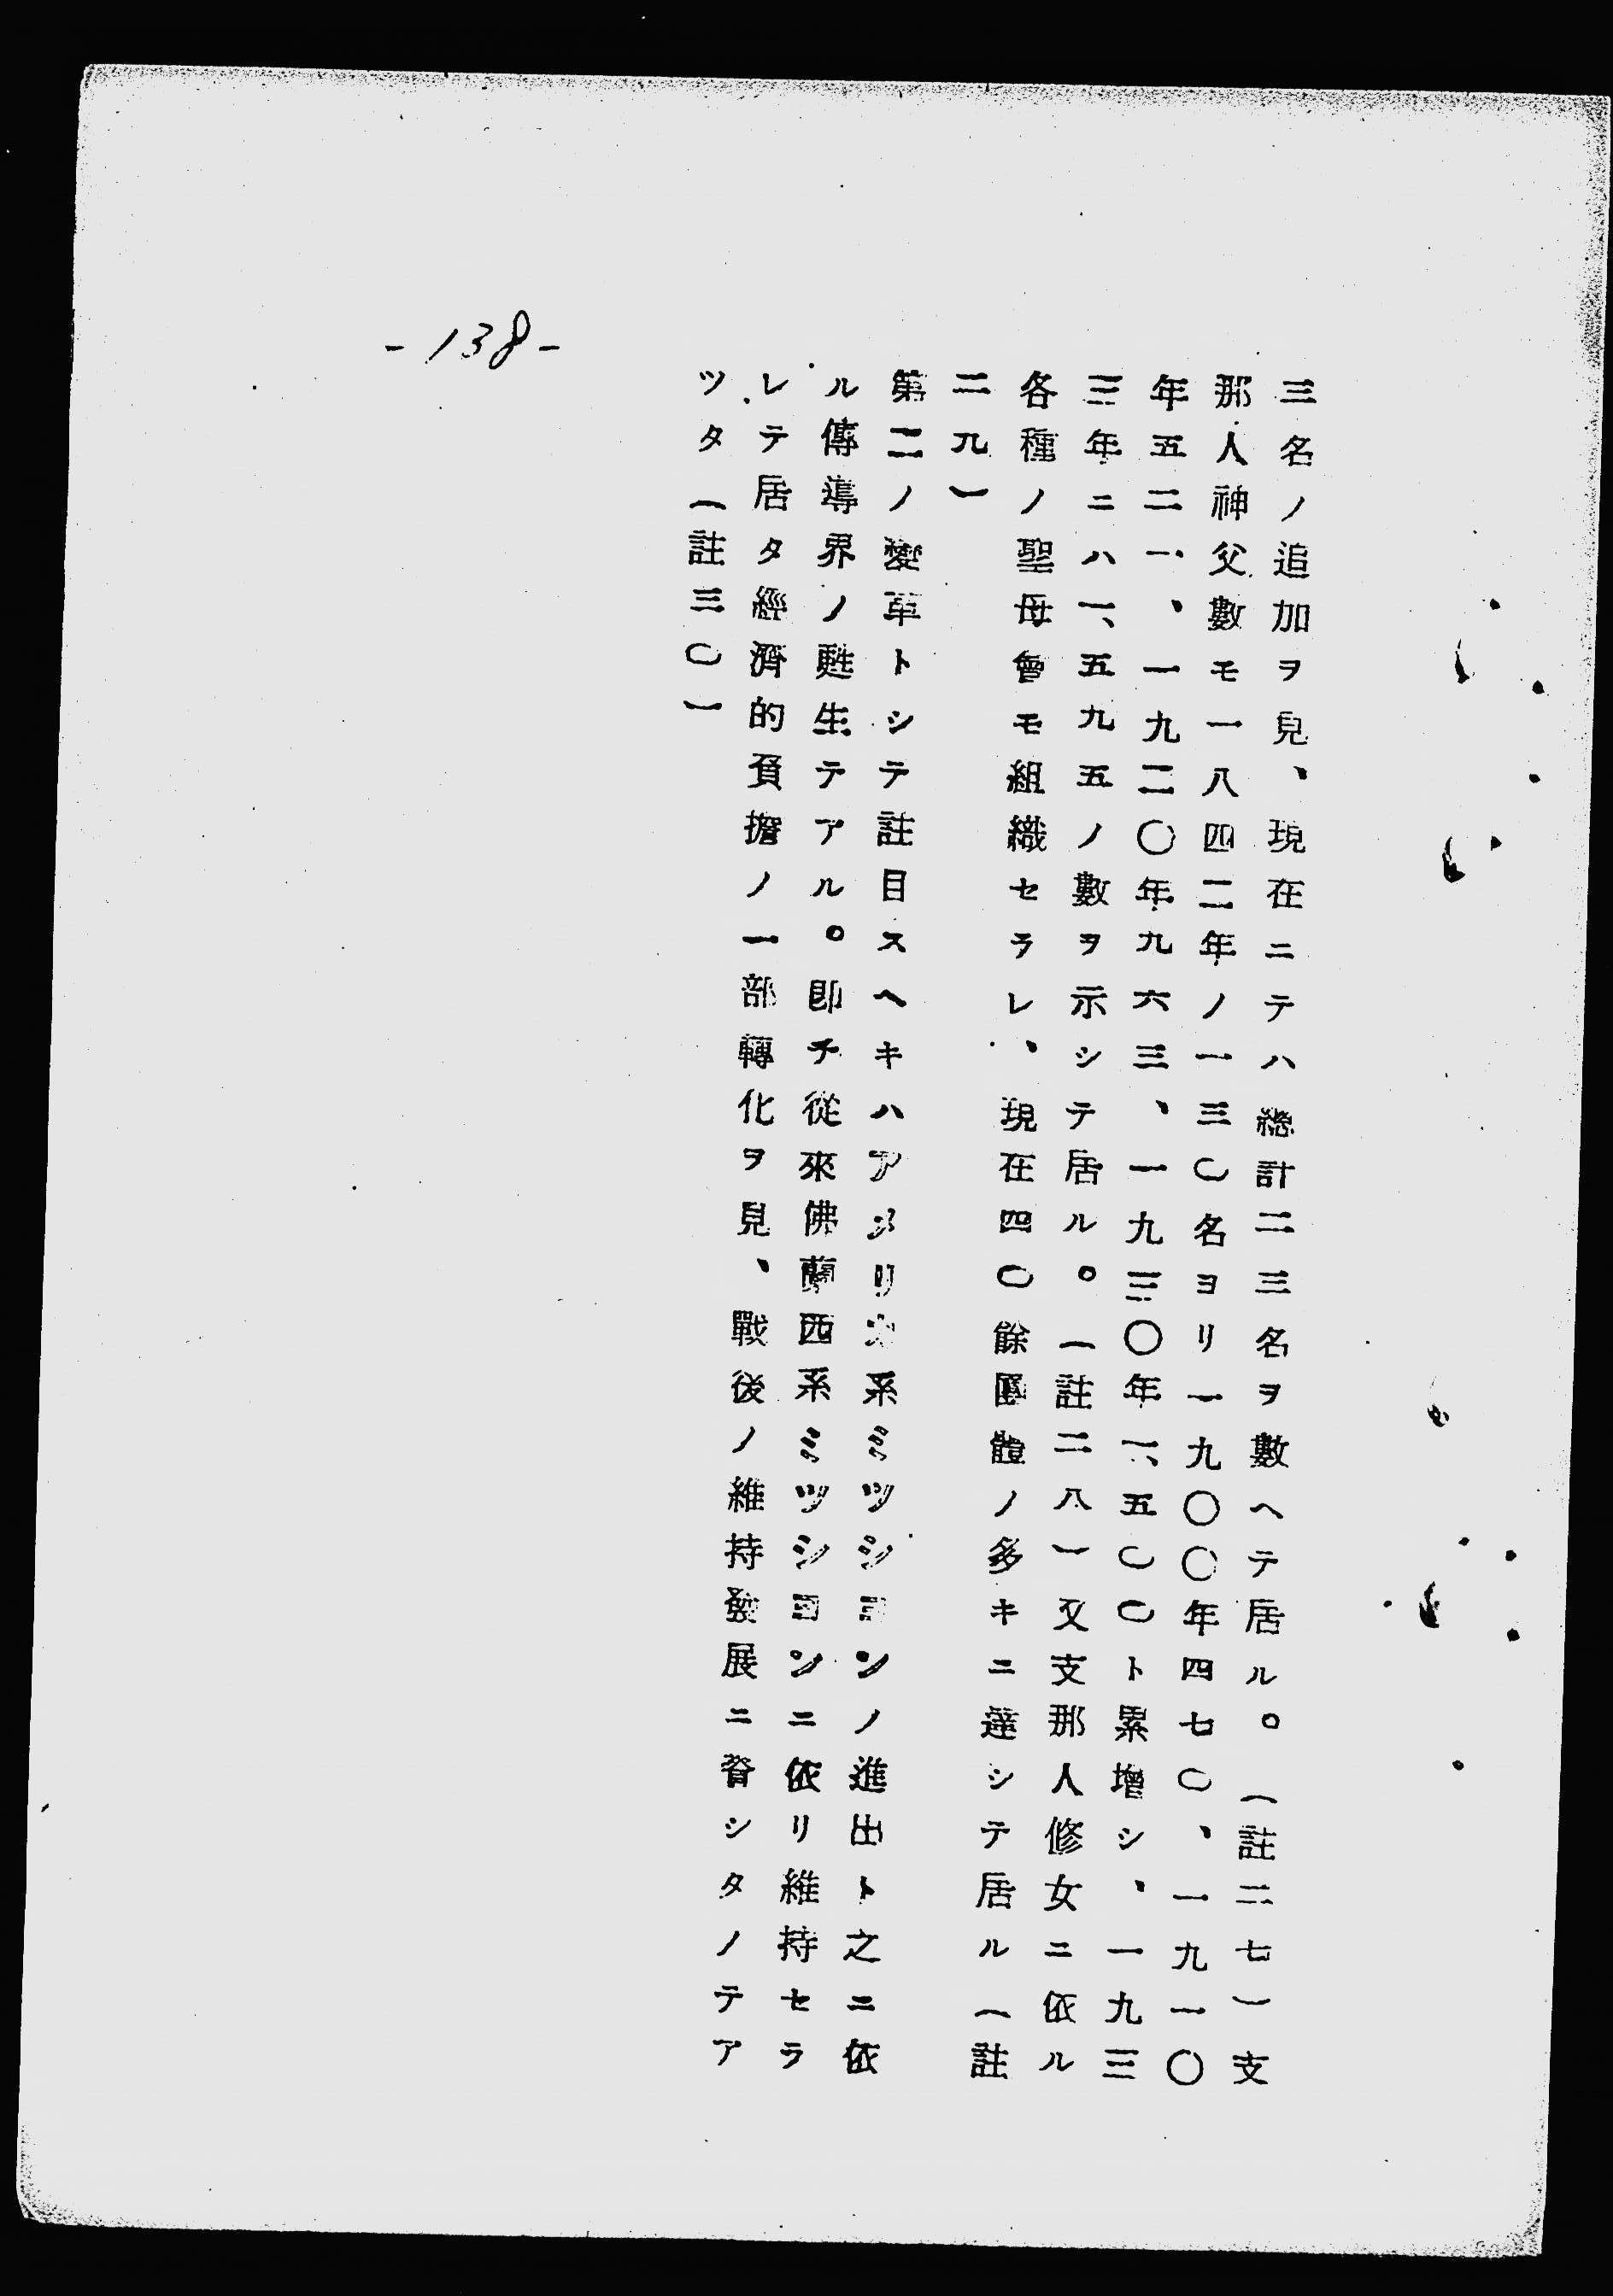 三名ノ追加ヲ見、現在ニテハ總計二三名ヲ數ヘテ居ル。(註二七)支
那人神父數モ一八四二年ノ一三〇名ヨリ一九〇〇年四七〇、一九一〇
年五二一、一九二〇年九六三、一九三〇年一、五〇〇ト累增シ、一九三
三年ニハ一、五九五ノ數ヲ示シテ居ル。(註二八)又支那人修女ニ依ル
各種ノ聖母會モ組織セラレ、現在四〇餘團體ノ多キニ達シテ居ル(註
二九)
第二ノ變革トシテ註目スヘキハアメリカ系ミツシヨンノ進出ト之ニ依
ル傳導界ノ甦生テアル。卽チ從來佛蘭西系ミツシヨンニ依リ維持セラ
レテ居タ經濟的負擔ノ一部轉化ヲ見、戰後ノ維持發展ニ脊シタノテア
ツタ(註三〇)
-138-